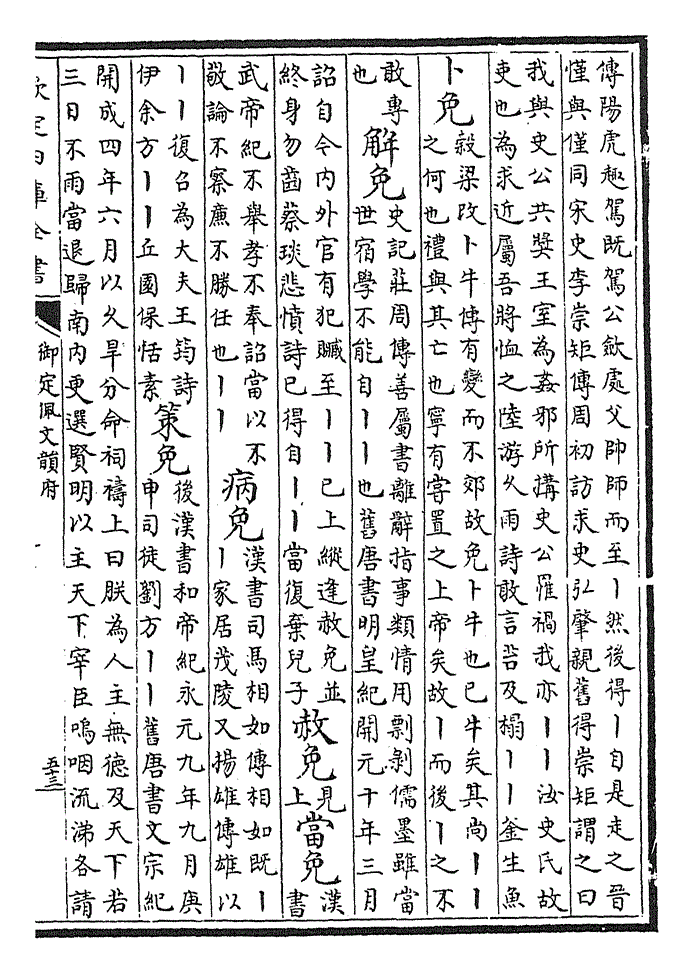 傳陽虎趣駕既駕公斂處父帥師而至丨然後得丨自是走之晉
僅與僅同宋史李崇矩傳周初訪求史弘肇親舊得崇矩謂之曰
我與史公共奬王室為姦邪所搆史公罹禍我亦丨丨汝史氏故
吏也為求近屬吾將恤之陸游久雨詩敢言菭及榻丨丨釜生魚
卜免
榖梁改卜牛傳有變而不郊故免卜牛也已牛矣其尚丨丨
之何也禮與其亡也寧有嘗置之上帝矣故丨而後丨之不
敢專
也
解免
史記莊周傳善屬書離辭指事類情用剽剝儒墨雖當
世宿學不能自丨丨也舊唐書明皇紀開元十年三月
詔自今内外官有犯贓至丨丨已上縱逢赦免並
終身勿齒蔡琰悲憤詩已得自丨丨當復棄兒子
赦免
見
上
當免
漢
書
武帝紀不舉孝不奉詔當以不
敬論不察廉不勝任也丨丨
病免
漢書司馬相如傳相如既丨
丨家居茂陵又揚雄傳雄以
丨丨復召為大夫王筠詩
伊余方丨丨丘園保恬素
策免
後漢書和帝紀永元九年九月庚
申司徒劉方丨丨舊唐書文宗紀
開成四年六月以久旱分命祠禱上曰朕為人主無德及天下若
三日不雨當退歸南内更選賢明以主天下宰臣嗚咽流涕各請
欽定四庫全書
御定佩文韻府
五十三